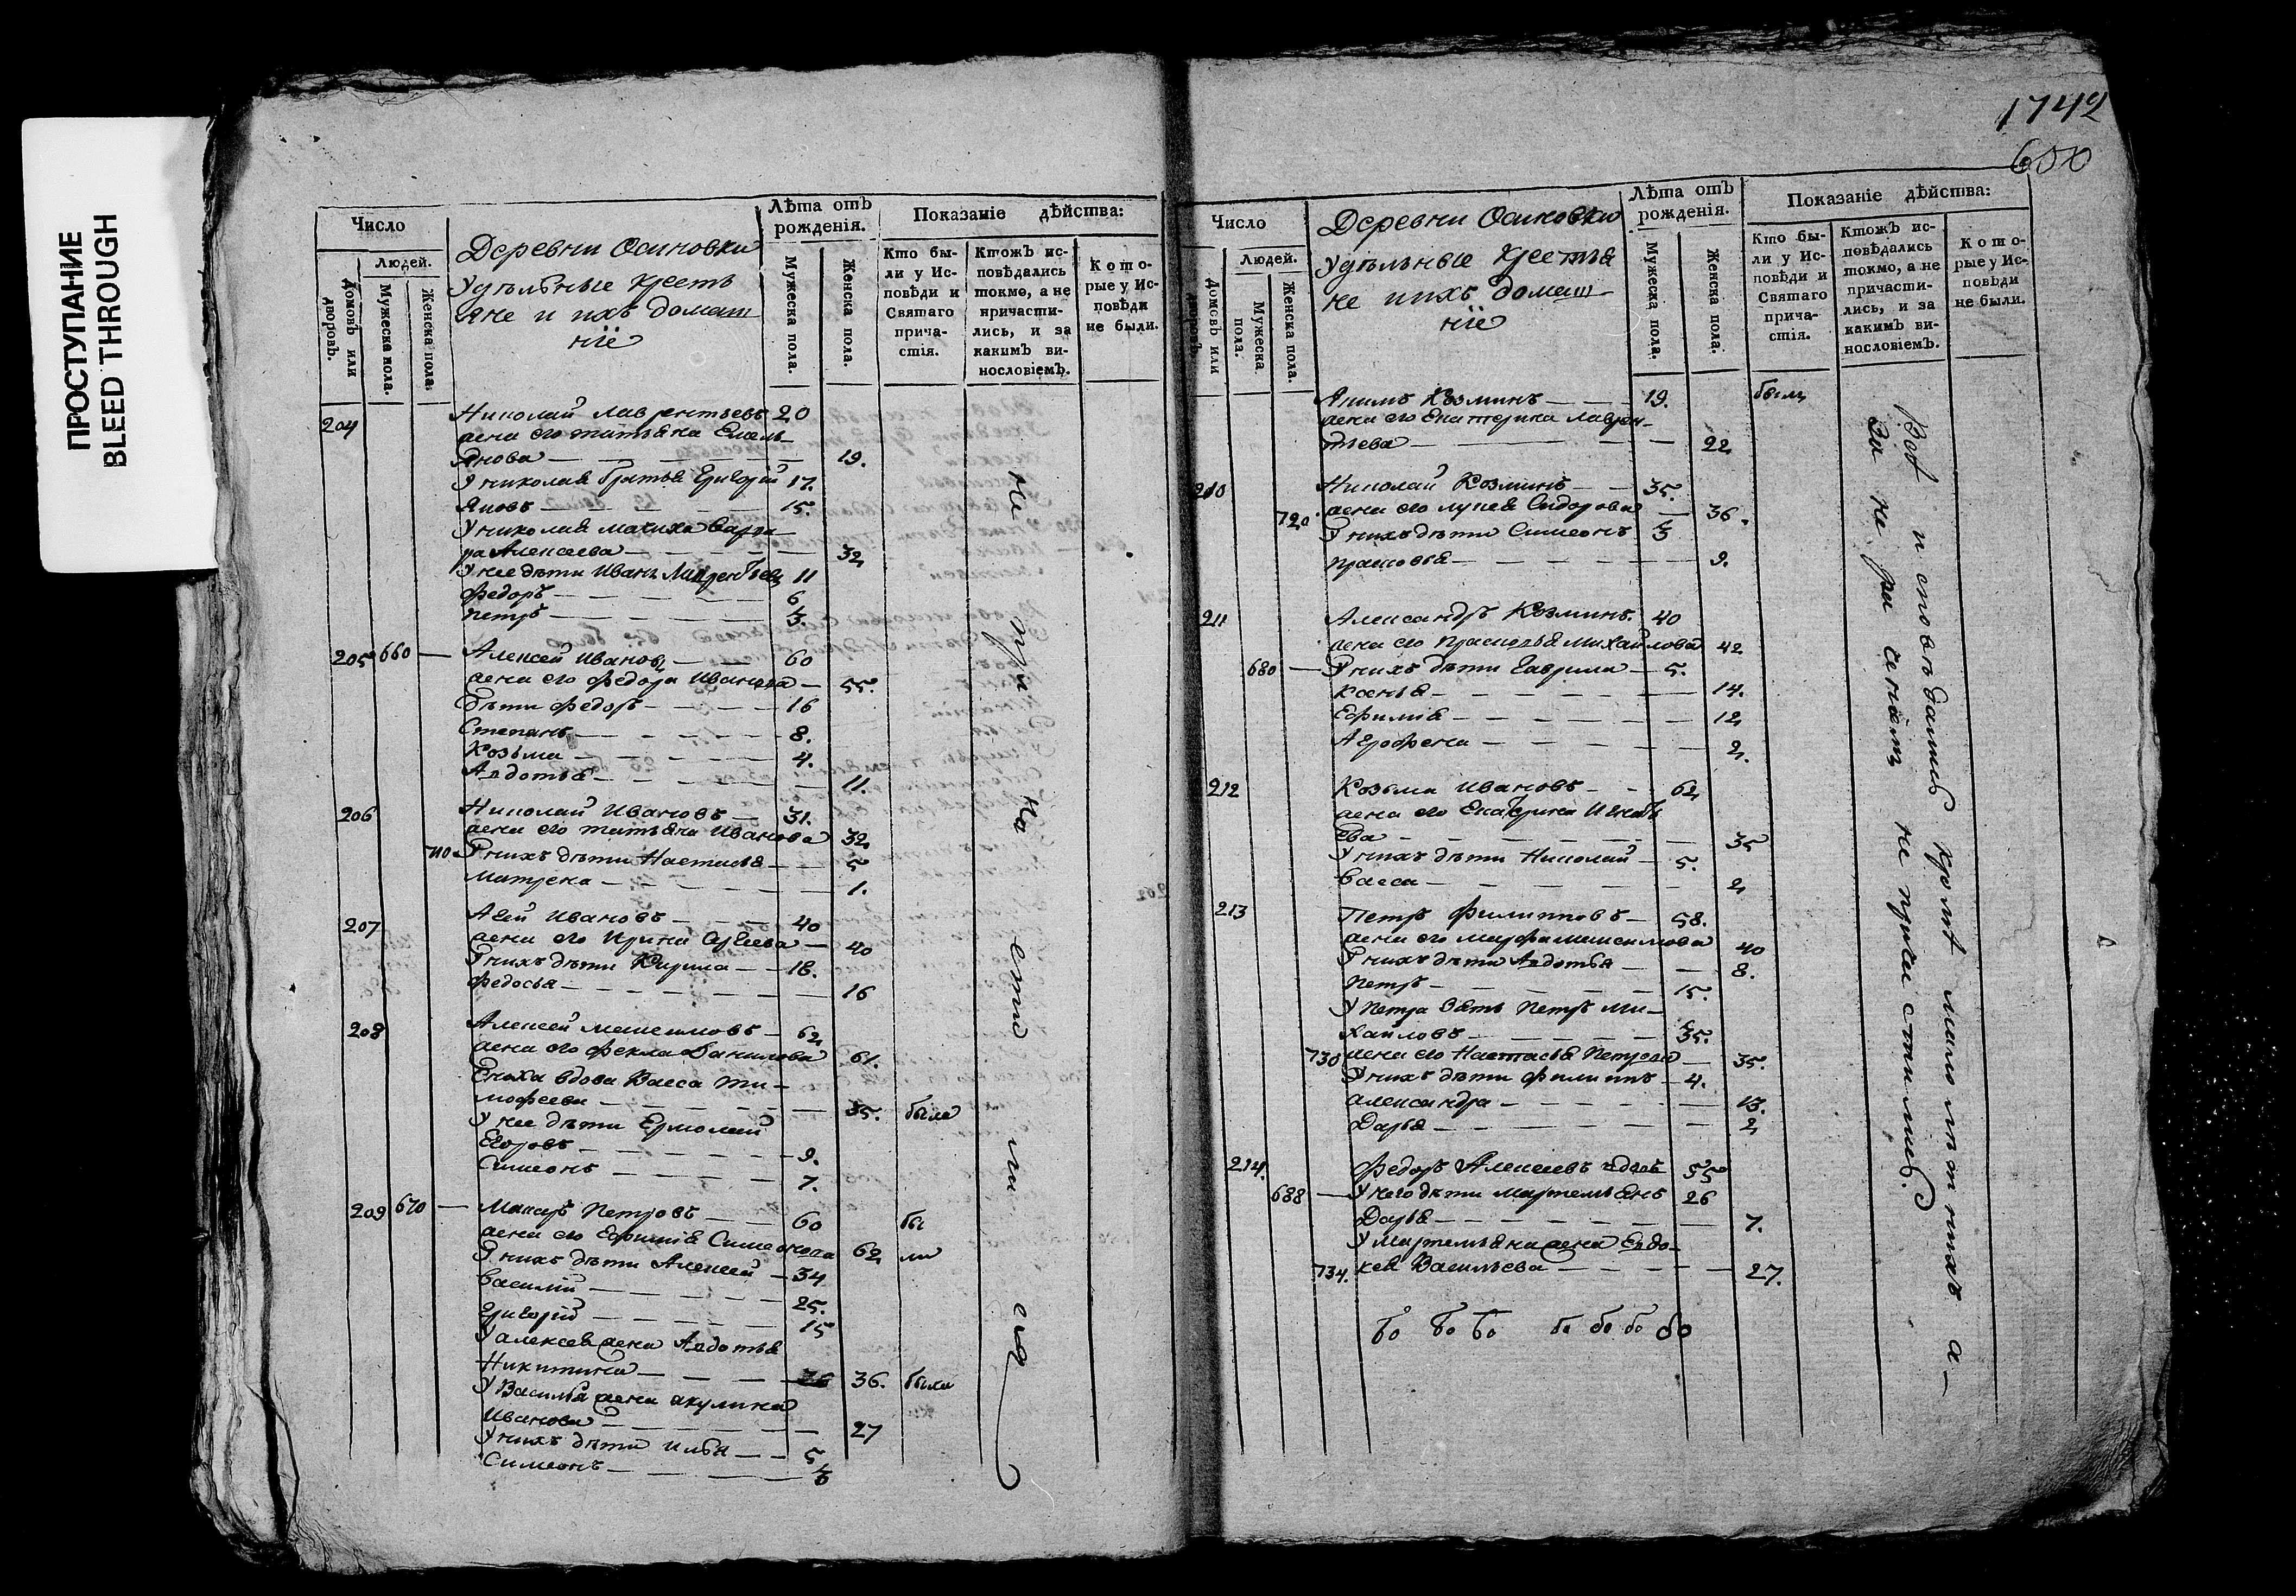 ПРОСТУПАНИЕ
BLEED THROUGH
Число
Людей.
Домовъ или дворовъ.
Мужеска пола.
Женска пола.
Деревни Осиновки
Удѣльные крестъ
яне и ихъ домаш
ніе
Лѣта отъ рожденія.
Мужеска пола.
Женска пола.
Показаніе дѣйства:
Кто бы-
ли у Ис-
повѣди и
Святаго
прича-
стія.
Ктожъ ис-
повѣдались
токмо, а не
причасти-
лись, и за
какимъ ви-
нословіемъ.
Кото-
рые у Ис-
повѣди
не были.
204 Николай Лаврентьевъ 20
жена его татьяна Емель-
янова 19.
У николая братья Григорій 17.
Яковъ 15.
У николая мачиха Варва
ра Алексеева 32
У нее дѣти Иванъ Лаврентьевъ 11
Федоръ 6
Петръ 3.
205 660 Алексей Ивановъ 60
жена его Федора Иванова 55.
дѣти Федоръ 16
Степанъ 8.
Козьма 4.
Авдотья 11.
206 Николай Ивановъ 31.
жена его татьяна Иванова 32
710 У нихъ дѣти Настасья 5
Матрена 1.
207 Агей Ивановъ 40
жена его Ирина Сргеева 40
У нихъ дѣти Кирила 18.
Федосья 16
208 Алексей Максимовъ 62
жена его Фекла Данилова 61.
Сноха вдова Васса Ти-
мофеева 35. была
У нее дѣти Ермолай
Егоровъ 9.
Симеонъ 7.
209 670 Макаръ Петровъ 60 бы
жена его Ефимія Симеонова 62 ли
У нихъ дѣти Алексей 34
Василій 25.
Григорій 15
У алексея жена Авдотья
Никитина 36. была
У Василья жена акулина
Иванова 27
У нихъ дѣти Илья 5
Симеонъ
не при ча сти ли ся
1742
Число
Людей.
Домовъ или дворовъ.
Мужеска пола.
Женска пола.
Деревни Осиновки
Удѣльные крестья
не и ихъ домаш-
ніе
Лѣта отъ рожденія.
Мужеска пола.
Женска пола.
Показаніе дѣйства:
Кто бы-
ли у Ис-
повѣди и
Святаго
прича-
стія.
Ктожъ ис-
повѣдались
токмо, а не
причасти-
лись, и за
какимъ ви-
нословіемъ.
Кото-
рые у Ис-
повѣди
не были.
Якимъ Козминъ 19. были
жена его Екатерина Лаврен-
тьева 22
210 Николай Козминъ 35.
720 жена его Лукея Сидорова 36.
У нихъ дѣти Симеонъ 3
Прасковья 9.
211 Александръ Козминъ. 40
жена его Прасковья Михайлова 42
680 У нихъ дѣти Гаврила 5.
Ксенья 14.
Ефимія 12
Агрофена 2.
212 Козьма Ивановъ 62
жена его Екатерина Игнать
ева 35
У нихъ дѣти Николай 5.
Васса 2
213 Петръ Филипповъ 58.
жена его Марфа Максимова 40
У нихъ дѣти Авдотья 8.
Петръ 15.
У Петра Зять Петръ Ми-
хайловъ 35.
730 жена его Настасья Петрова 35.
У нихъ дѣти Филиппъ 4.
александра 13.
Дарья 2
214. Федоръ Алексеевъ вдовъ 55
688 У него дѣти Мартемьянъ 26
Дарья 7.
У Мартемьяна жена Евдо-
734. кея Васильева 27.
Всѣ исповѣдались кромѣ малолѣтнихъ а-
За нерачениемъ не причастились.